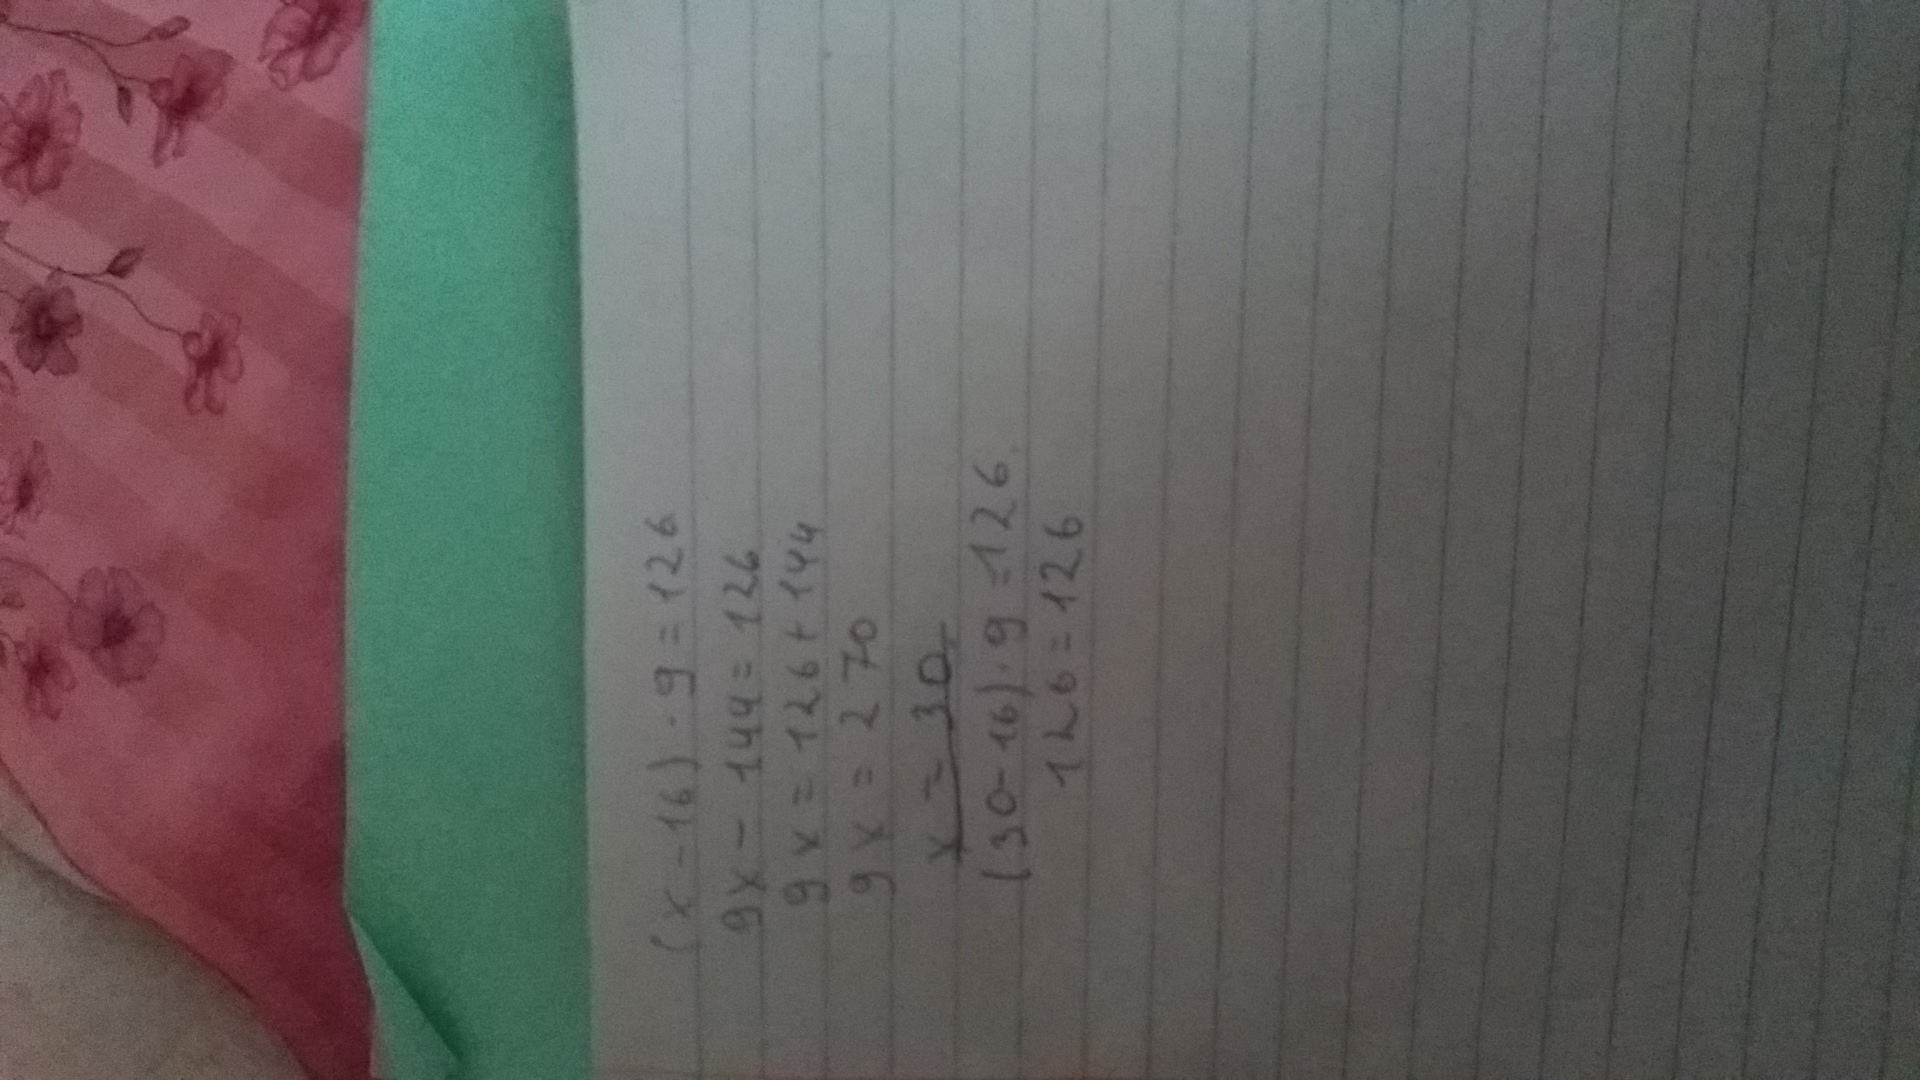 (x-16)·9=126
9x-144=126
9x=126+144
9x=270
x=30
(30-16)·9=126.
126=126